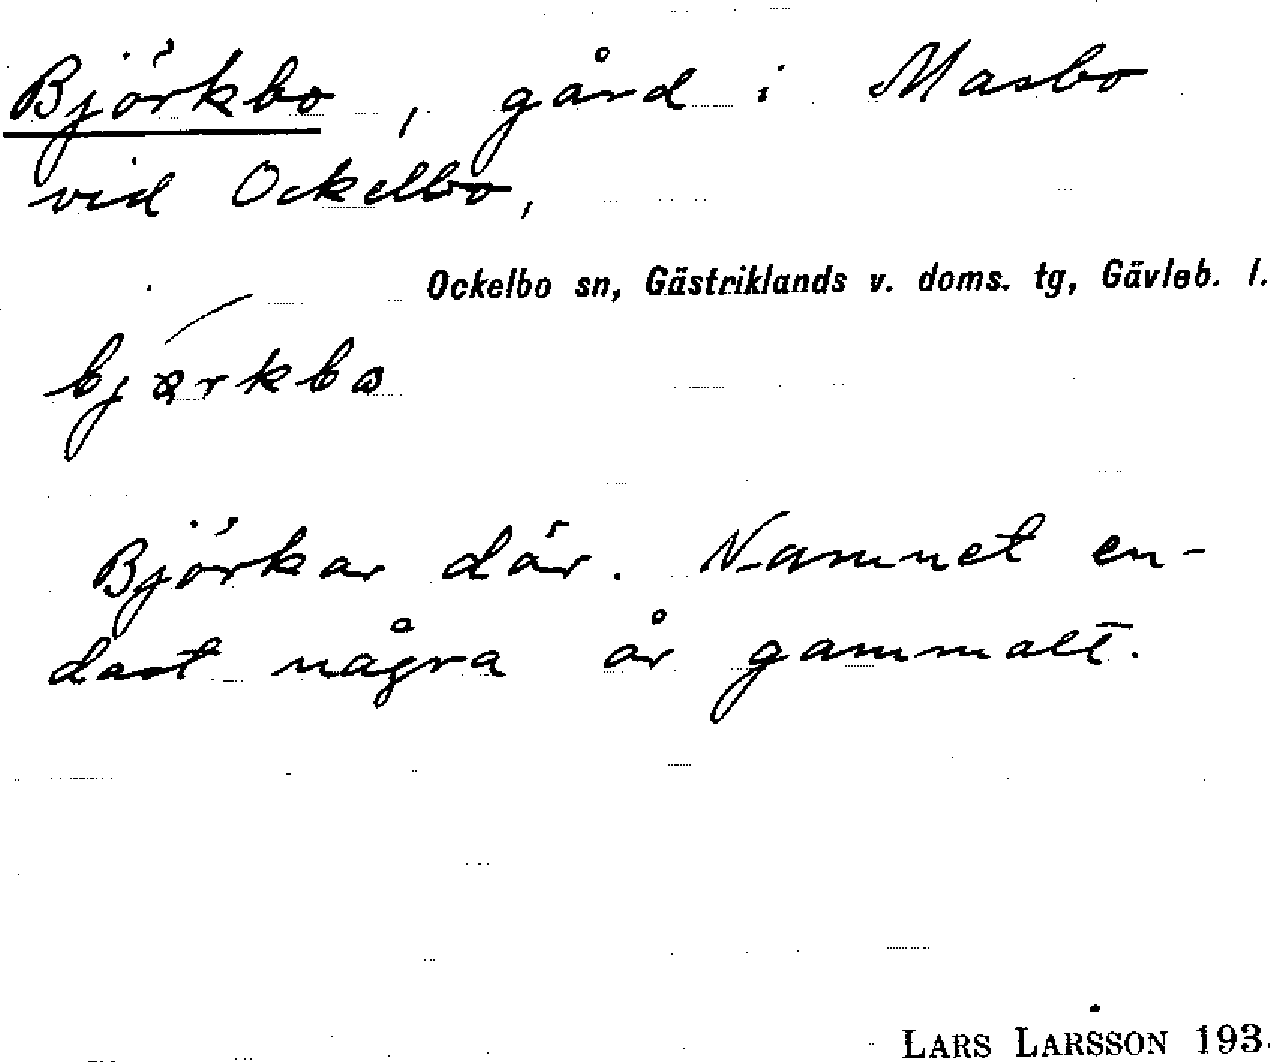 Björkbo, gård i Masbo
vid Ockelbo,
Ockelbo sn, Gästriklands v. doms. tg, Gävleb. l.
bjærkbo
Björkar där. Namnet en-
dast några år gammalt.
LARS LARSSON 193